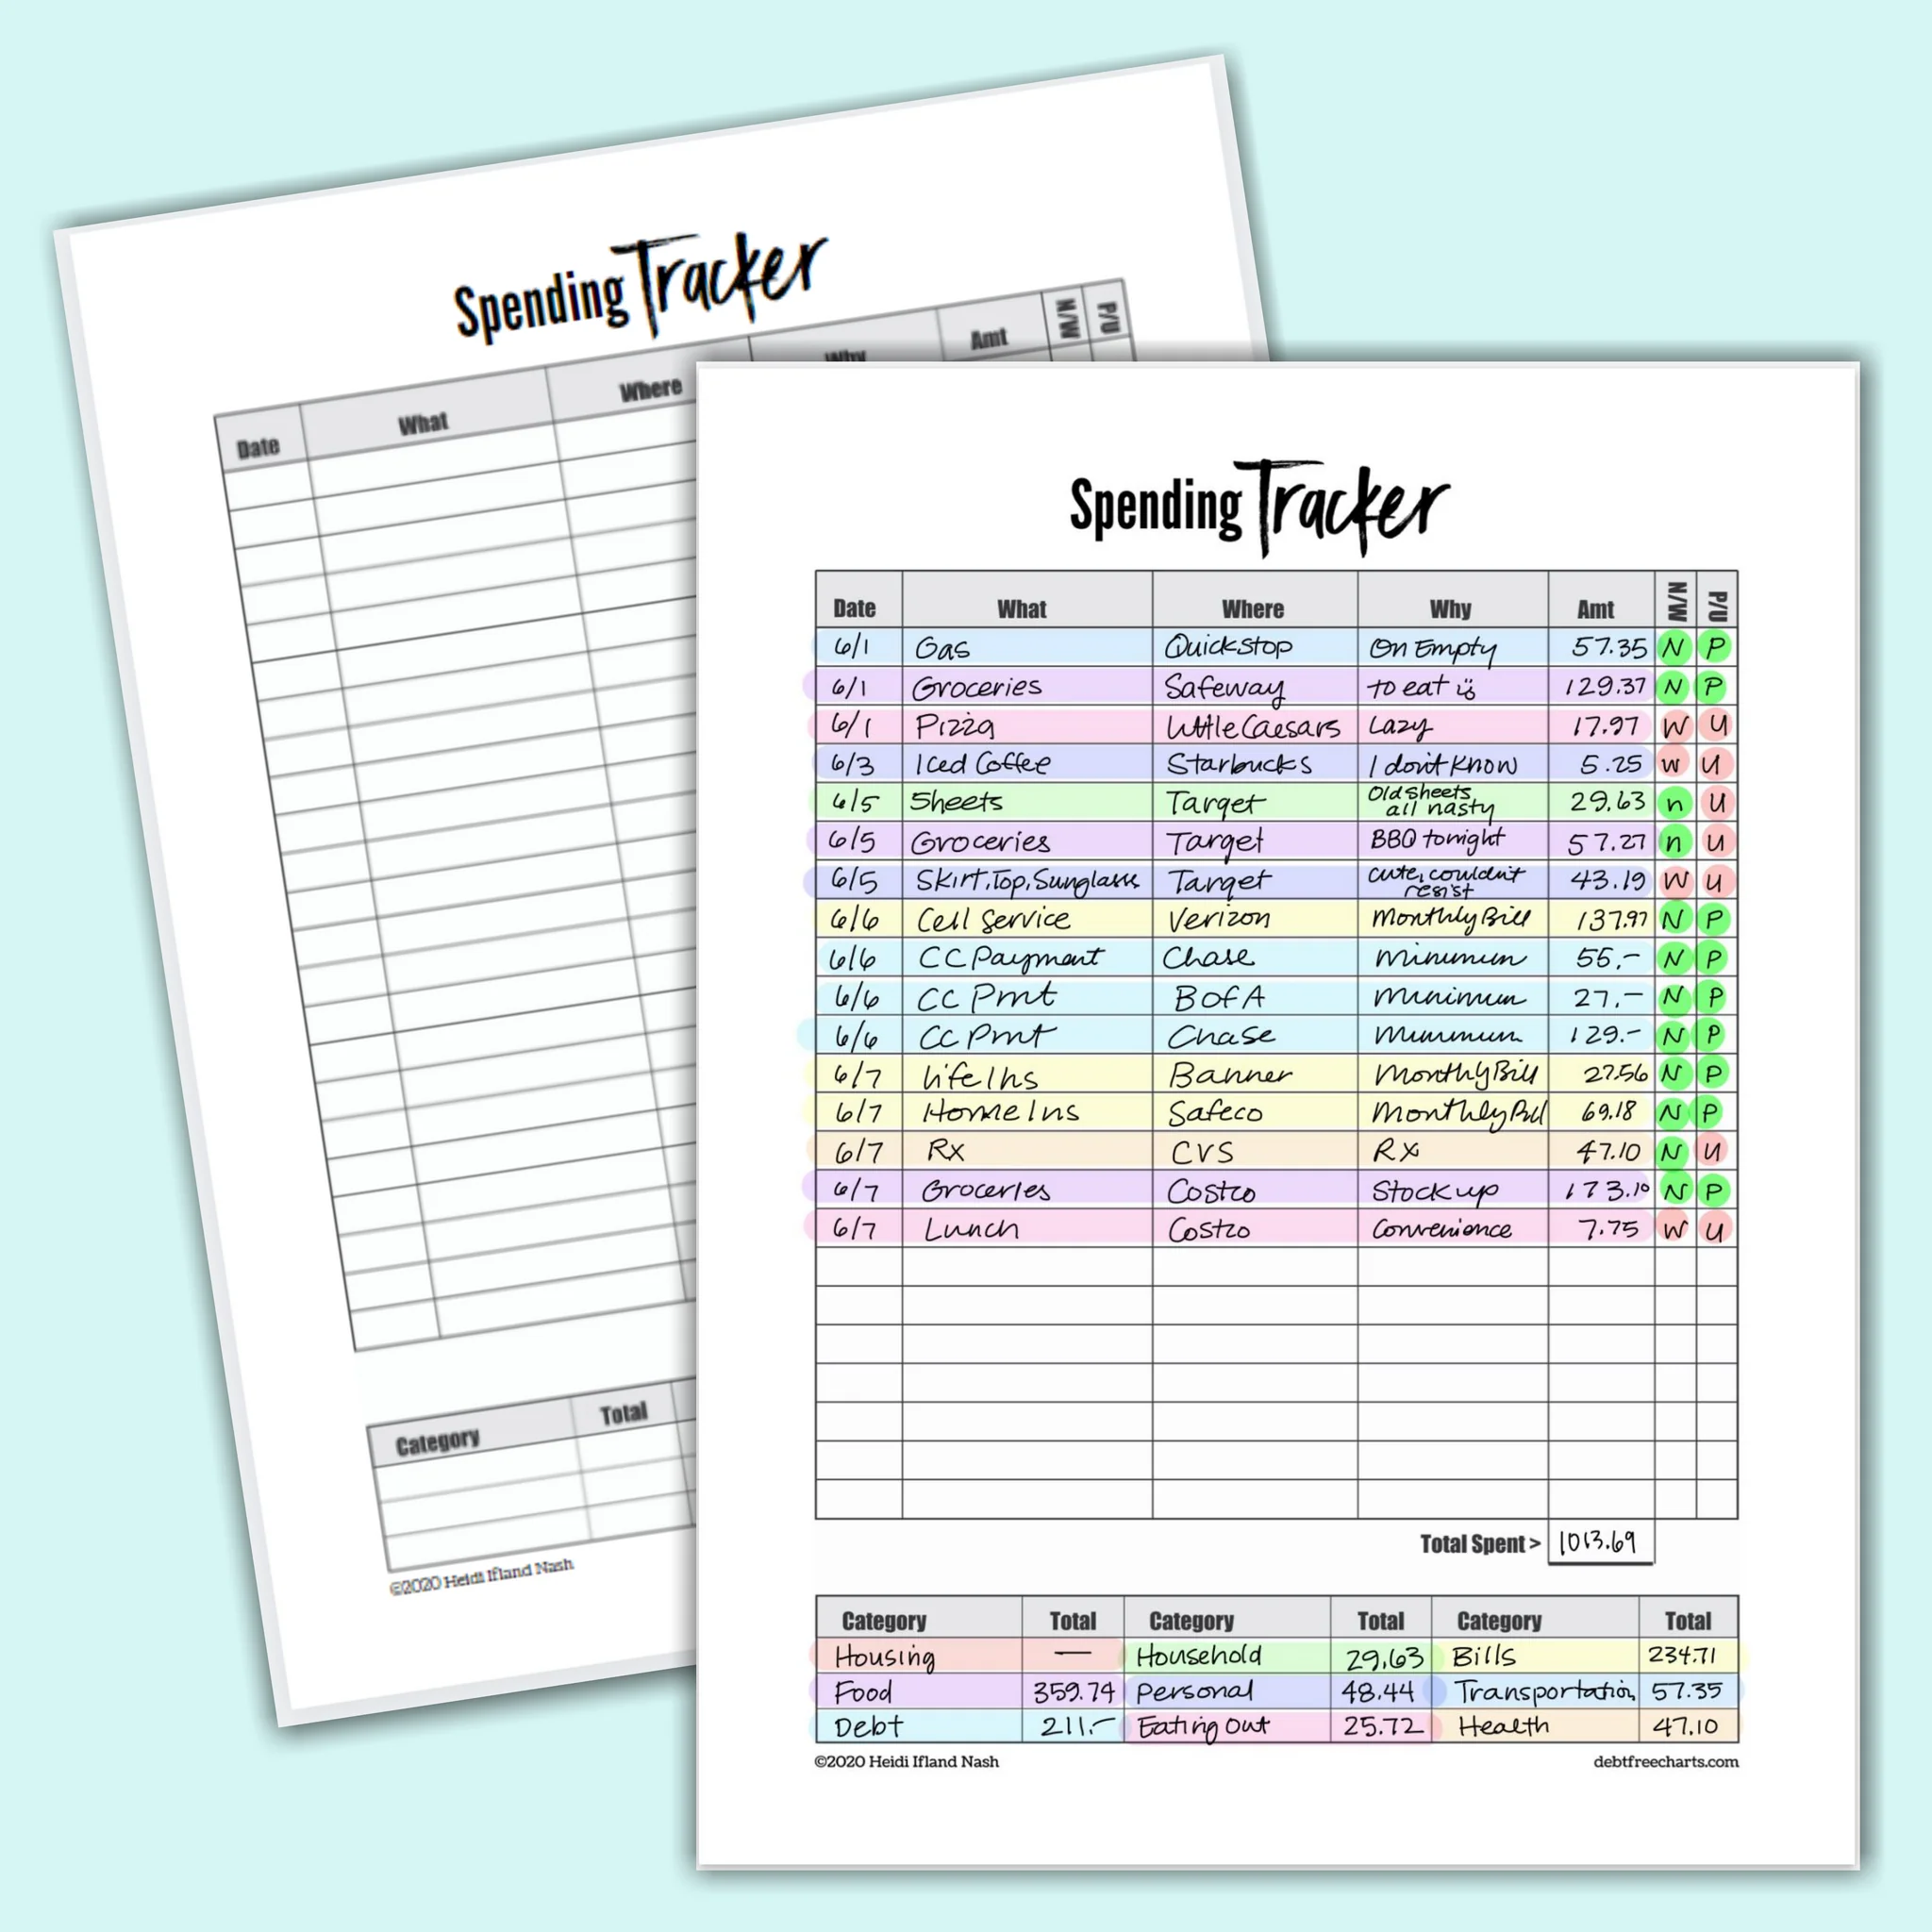 Spending Tracker
Date What Where Why Amt N/W P/U
Category Total
©2020 Heidi Ifland Nash
Spending Tracker
Date What Where Why Amt N/W P/U
6/1 Gas Quickstop On Empty 57.35 N P
6/1 Groceries Safeway to eat 129.37 N P
6/1 Pizza Little Caesars Lazy 17.97 W U
6/3 Iced Coffee Starbucks I don't know 5.25 W U
6/5 Sheets Target Old sheets all nasty 29.63 n U
6/5 Groceries Target BBQ tonight 57.27 n U
6/5 Skirt, Top, Sunglasses Target cute, couldn't resist 43.19 W U
6/6 Cell Service Verizon Monthly Bill 137.97 N P
6/6 CC Payment Chase Minimum 55.- N P
6/6 CC Pmt BofA Minimum 27.- N P
6/6 CC Pmt Chase Minimum 129.- N P
6/7 Life Ins Banner Monthly Bill 27.56 N P
6/7 Home Ins Safeco Monthly Bill 69.18 N P
6/7 Rx CVS Rx 47.10 N U
6/7 Groceries Costco Stock up 173.10 N P
6/7 Lunch Costco Convenience 7.75 W U
Total Spent > 1013.69
Category Total Category Total Category Total
Housing — Household 29.63 Bills 234.71
Food 359.74 Personal 48.44 Transportation 57.35
Debt 211.- Eating Out 25.72 Health 47.10
©2020 Heidi Ifland Nash debtfreecharts.com